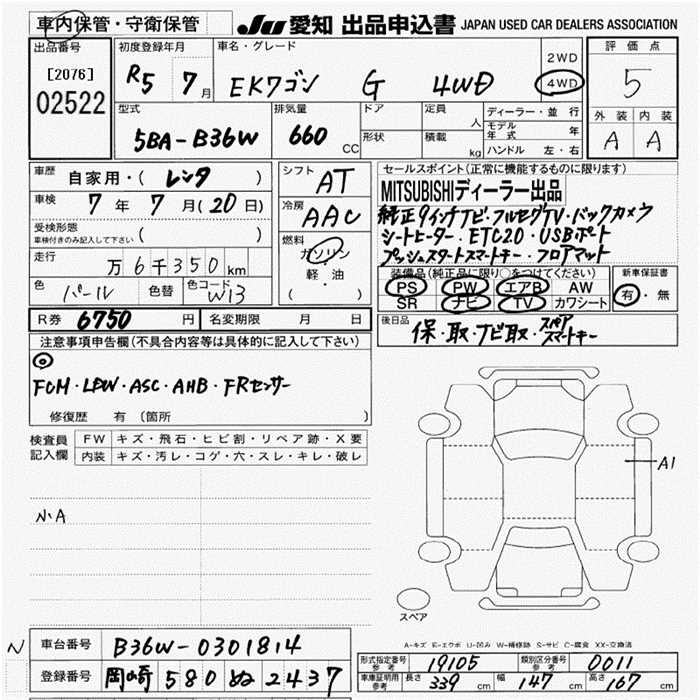 車内保管・守衛保管
JU 愛知 出品申込書 JAPAN USED CAR DEALERS ASSOCIATION
出品番号 初度登録年月 車名・グレード 評価点
[2076] R5 7月 EKワゴン G 4WD 2WD 4WD 5
02522
型式 排気量 ドア 定員 人 ディーラー・並行 外装 内装
5BA-B36W 660 CC 形状 積載 kg モデル年式 年 A A
ハンドル 左・右
車歴 自家用・( レンタ )
車検 7年 7月(20日)
受検形態
車検付きのみ記入して下さい ( )
走行 万6千350km
色 パール 色替 色コード W13
シフト AT
冷房 AAC
燃料 ガソリン
軽・油
( )
セールスポイント(正常に機能するものに限ります)
MITSUBISHIディーラー出品
純正9インチナビ・フルセグTV・バックカメラ
シートヒーター・ETC2.0・USBポート
プッシュスタートスマートキー・フロアマット
装備品(純正品に限り○をつけてください) 新車保証書
PS PW エアB AW 有・無
SR ナビ TV カワシート
R券 6750円 名変期限 月 日
後日品 保・取・ナビ取・スペアスマートキー
注意事項申告欄(不具合内容等は具体的に記入して下さい)
◎
FCM・LDW・ASC・AHB・FRセンサー
修復歴 有(箇所 )
検査員記入欄 FW キズ・飛石・ヒビ割・リペア跡・X要
内装 キズ・汚レ・コゲ・穴・スレ・キレ・破レ
小A
A1
スペア
A-キズ E-エクボ U-凹み W-補修跡 S-サビ C-腐食 XX-交換済
N 車台番号 B36W-0301814
登録番号 岡崎 580 ぬ 2437
形式指定番号 参考 19105 類別区分番号 参考 0011
車庫証明用 参考 長さ 339cm 幅 147cm 高さ 167cm